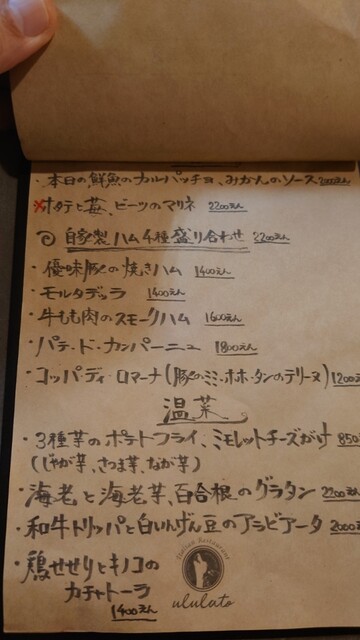 ・本日の鮮魚のカルパッチョ、みかんのソース
※ホタテと苺、ビーツのマリネ 2200えん
自家製ハム4種盛り合わせ 2200えん
・優味豚の焼きハム 1400えん
・モルタデッラ 1400えん
・牛もも肉のスモークハム 1600えん
・パテ・ド・カンパーニュ 1800えん
・コッパ・ディ・ロマーナ(豚のミミ・ホホ・タンのテリーヌ) 1200え
温菜
・3種芋のポテトフライ、ミモレットチーズがけ 850
(じゃが芋、さつま芋、なが芋)
・海老と海老芋、百合根のグラタン 2200えん
・和牛トリッパと白いんげん豆のアラビアータ 2000え
・鶏せせりとキノコの
カチャトーラ
1400えん
Italian Restaurant
ululato